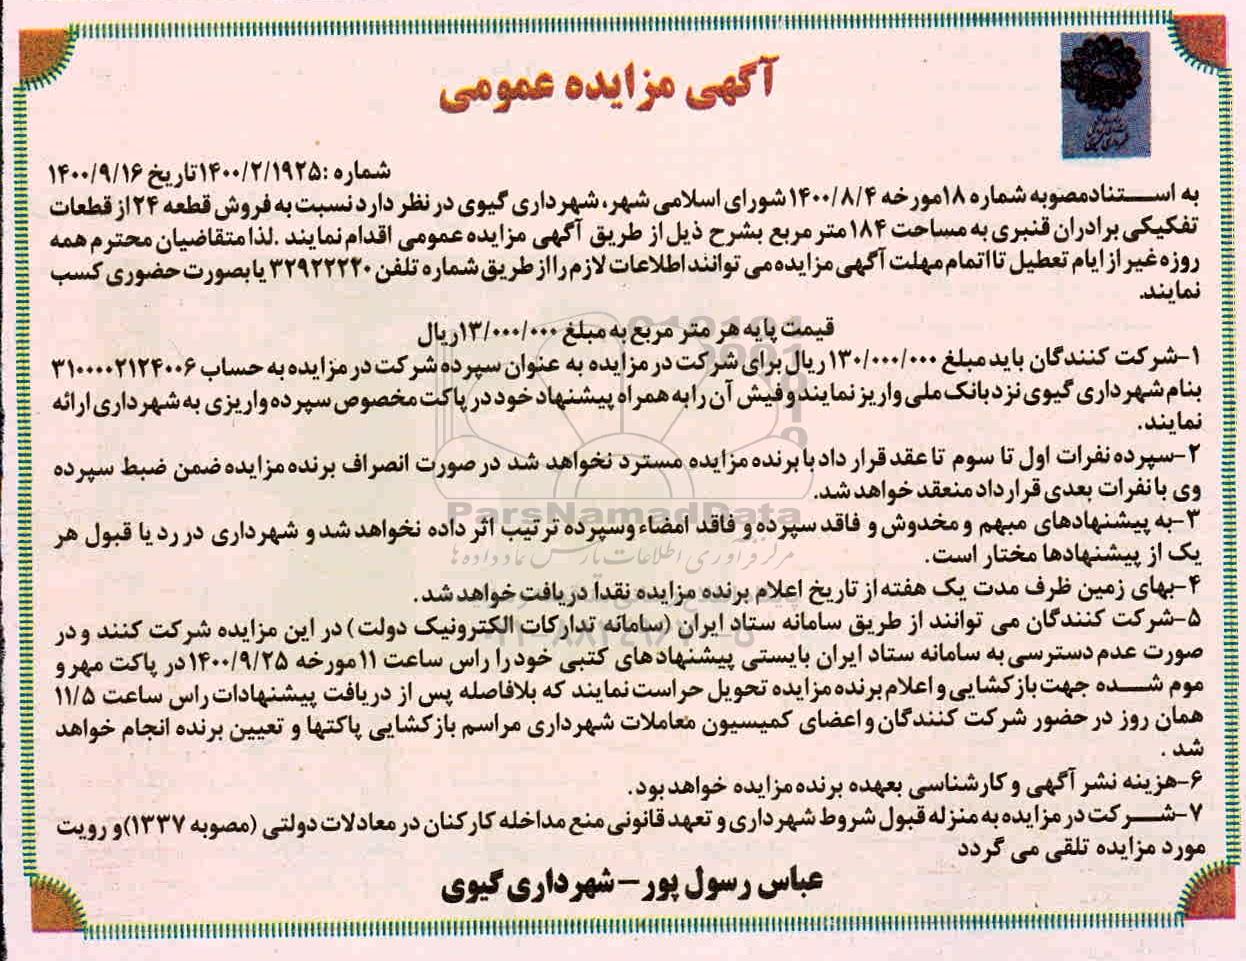 آگهی مزایده عمومی
شماره :۱۴۰۰/۲/۱۹۲۵تاریخ ۱۴۰۰/۹/۱۶
به استنادمصوبه شماره ۱۸مورخه ۱۴۰۰/۸/۴ شورای اسلامی شهر، شهرداری گیوی در نظر دارد نسبت به فروش قطعه ۲۴ از قطعات
تفکیکی برادران قنبری به مساحت ۱۸۴ متر مربع بشرح ذیل از طریق آگهی مزایده عمومی اقدام نمایند .لذا متقاضیان محترم همه
روزه غیر از ایام تعطیل تا اتمام مهلت آگهی مزایده می توانند اطلاعات لازم را از طریق شماره تلفن ۳۲۹۲۲۲۲۰ یا بصورت حضوری کسب
نمایند.
قیمت پایه هر متر مربع به مبلغ ۱۳/۰۰۰/۰۰۰ریال
۱-شرکت کنندگان باید مبلغ ۱۳۰/۰۰۰/۰۰۰ ریال برای شرکت در مزایده به عنوان سپرده شرکت در مزایده به حساب ۳۱۰۰۰۰۲۱۲۴۰۰۶
بنام شهرداری گیوی نزد بانک ملی واریز نمایند و فیش آن را به همراه پیشنهاد خود در پاکت مخصوص سپرده واریزی به شهرداری ارائه
نمایند.
۲-سپرده نفرات اول تا سوم تا عقد قرار داد با برنده مزایده مسترد نخواهد شد در صورت انصراف برنده مزایده ضمن ضبط سپرده
وی با نفرات بعدی قرارداد منعقد خواهد شد.
ParsNamadData
۳-به پیشنهادهای مبهم و مخدوش و فاقد سپرده و فاقد امضاء وسپرده ترتیب اثر داده نخواهد شد و شهرداری در رد یا قبول هر
یک از پیشنهادها مختار است.
مرکز فرآوری اطلاعات پارس نماد داده ها
۴-بهای زمین ظرف مدت یک هفته از تاریخ اعلام برنده مزایده نقدا دریافت خواهد شد.
۵-شرکت کنندگان می توانند از طریق سامانه ستاد ایران (سامانه تدارکات الکترونیک دولت) در این مزایده شرکت کنند و در
صورت عدم دسترسی به سامانه ستاد ایران بایستی پیشنهادهای کتبی خود را راس ساعت ۱۱ مورخه ۱۴۰۰/۹/۲۵ در پاکت مهر و
موم شده جهت بازکشایی و اعلام برنده مزایده تحویل حراست نمایند که بلافاصله پس از دریافت پیشنهادات راس ساعت ۱۱/۵
همان روز در حضور شرکت کنندگان و اعضای کمیسیون معاملات شهرداری مراسم بازکشایی پاکتها و تعیین برنده انجام خواهد
شد .
۶-هزینه نشر آگهی و کارشناسی بعهده برنده مزایده خواهد بود.
۷-شرکت در مزایده به منزله قبول شروط شهرداری و تعهد قانونی منع مداخله کارکنان در معادلات دولتی (مصوبه ۱۳۳۷)و رویت
مورد مزایده تلقی می گردد
عباس رسول پور – شهرداری گیوی